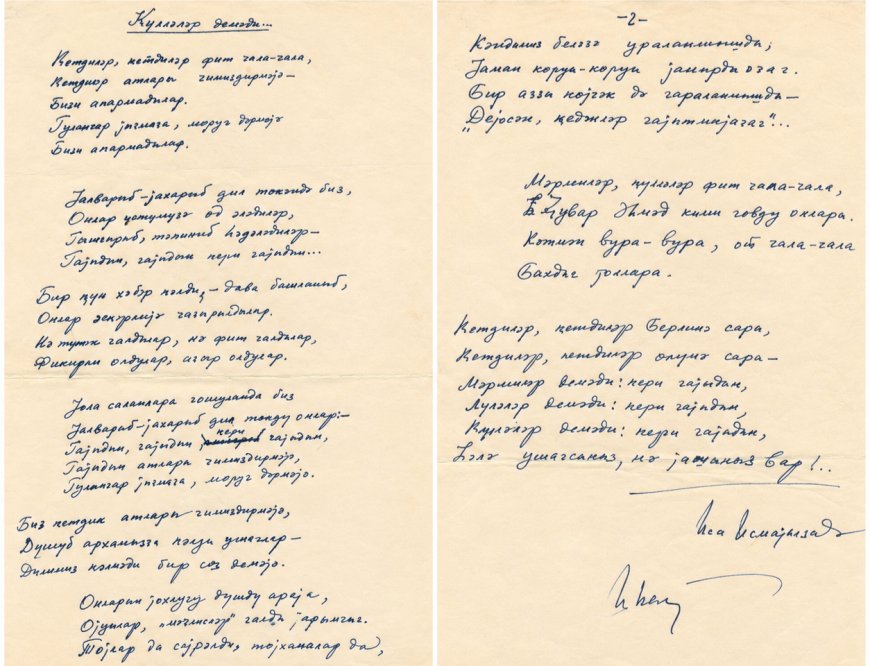 Күлләләр демәди...
Кетдиләр, кетдиләр фит чала-чала,
Кетдиләр атлары чимиздирмәјә—
Бизи апармадылар.
Гулангар јығмаға, моруг дәрмәјә
Бизи апармадылар.
Јалварыб-јахарыб дил төкәндә биз,
Онлар үстүмүзә од әләдиләр,
тәпиниб һәдәләдиләр—
Гајыдын, гајыдын кери гајыдын...
Бир күн хәбәр кәлди, — дава башланыб,
Онлар әскәрлијә чағырылдылар.
Нә түтәк чалдылар, нә фит чалдылар,
Фикирли олдулар, ағыр олдулар.
Јола саланлара гошуланда биз
Јалварыб-јахарыб дил төкдү онлар:—
Гајыдын, гајыдын кери гајыдын,
Гајыдын атлары чимиздирмәјә,
Гулангар јығмаға, моруг дәрмәјә.
Биз кетдик атлары чимиздирмәјә,
Дүшүб архамызҹа кәлди ушаглар—
Дилимиз кәлмәди бир сөз демәјә.
Онларын јохлуғу дүшдү араја,
Ојунлар, „мәчлисләр" галды јарымчыг.
Тојлар да сејрәлди, тојханалар да,
—2—
Кәндимиз беләҹә ғураланмышды;
Јаман көрүн-көрүн јағырды
Бир аззы көјчәк дә гараланмышды—
„Дејәсән, кедәнләр гајытмајаҹаг"...
Мәрмиләр, күлләләр фит чала-чала,
Чувар Әһмәд кими говду онлары.
Көтүкән вура-вура, от чала-чала
Бағлады ҝоллары.
Кетдиләр, кетдиләр Берлинә сары,
Кетдиләр, кетдиләр өлүмә сары—
Мәрмиләр демәди: кери гајыдын,
Лүләләр демәди: кери гајыдын,
Күлләләр демәди: кери гајыдын,
Һәлә ушагсыныз, нә јашыныз вар!..
Иса Исмајылзадә